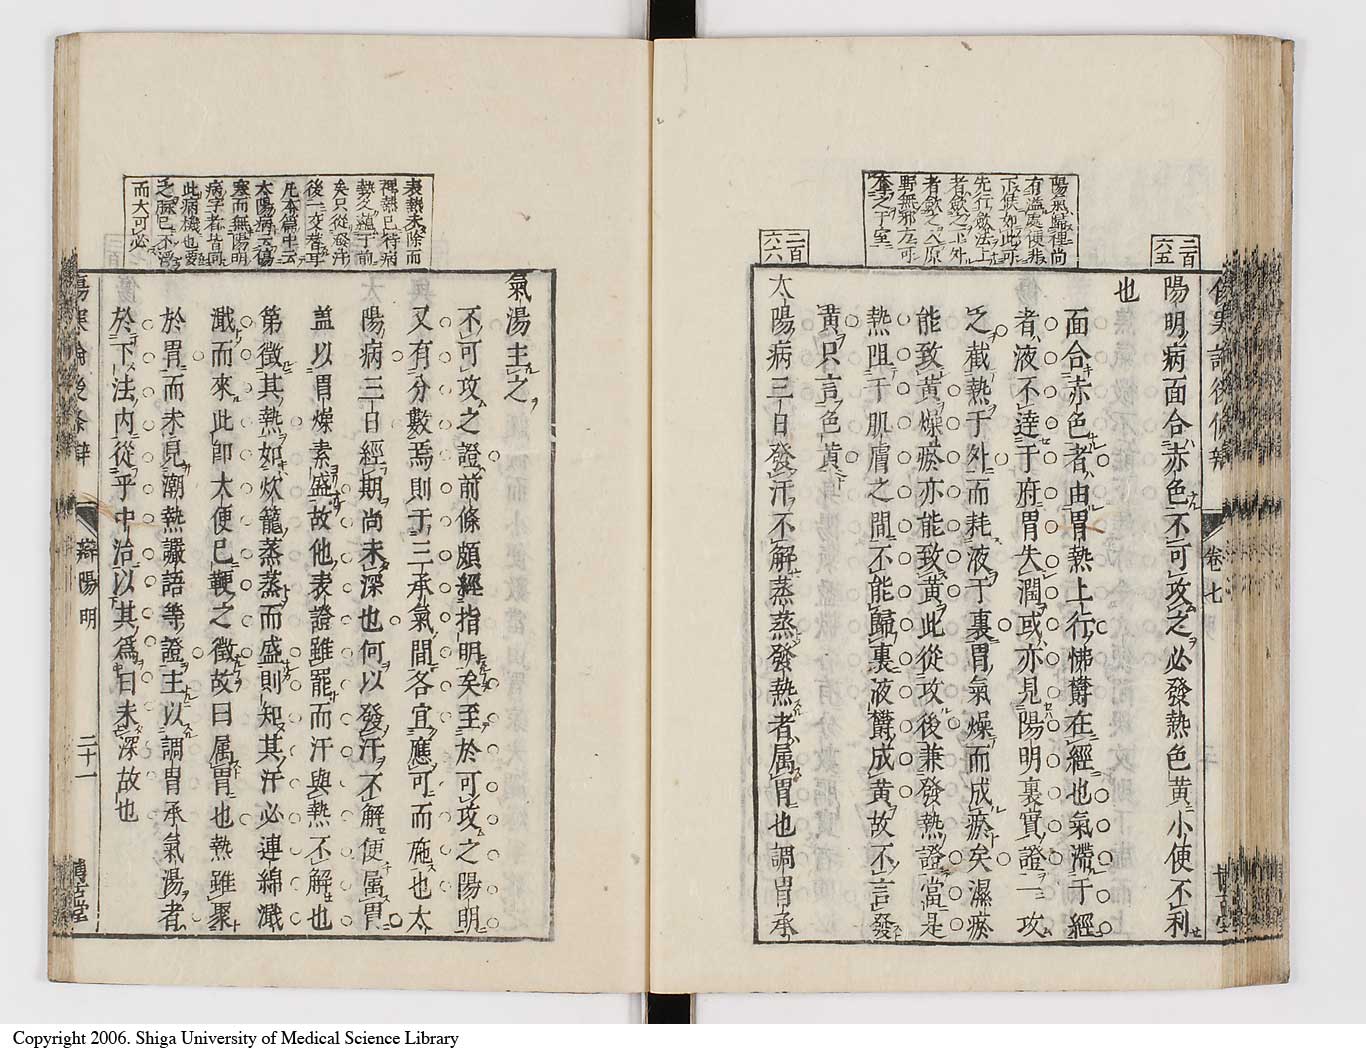 二百六五
陽明病面合赤色不可攻之必發熱色黃小便不利
也
面合赤色者由胃熱上行怫欝在經也氣滯于經
者液不達于府胃失潤或亦見陽明裏實證一攻
之截熱于外而耗液于裏胃氣燥而成瘀矣濕瘀
能致黃燥瘀亦能致黃此從攻後兼發熱證當是
熱阻于肌膚之間不能歸裏液欝成黃故不言發
黃只言色黃
二百六六
太陽病三日發汗不解蒸蒸發熱者属胃也調胃承
陽氣歸裡尚
有溢處便非
正候如此可
先行斂法上
者斂之上外
者斂之入原
野無邪方可
奎之于室
卷七
氣湯主之
不可攻之證前條頗經指明矣至於可攻之陽明
又有分數焉則于三承氣間各宜應可而施也太
陽病三日經期尚未深也何以發汗不解便属胃
蓋以胃燥素盛故他表證雖罷而汗與熱不解也
第徵其熱如炊籠蒸蒸而盛則知其汗必連綿濈
濈而來此卽大便已鞕之徵故曰属胃也熱雖聚
於胃而未見潮熱讝語等證主以調胃承氣湯者
於下法內從乎中治以其爲日未深故也
表熱未除而
裡熱已待病
勢久蘊于前
矣只從發汗
後一交替耳
凡本篇中云
太陽病云傷
寒而無陽明
病字者皆同
此病機也要
之脉已不浮
而大可必
傷寒論後条辯
辯陽明
二十一
博古堂
Copyright 2006. Shiga University of Medical Science Library